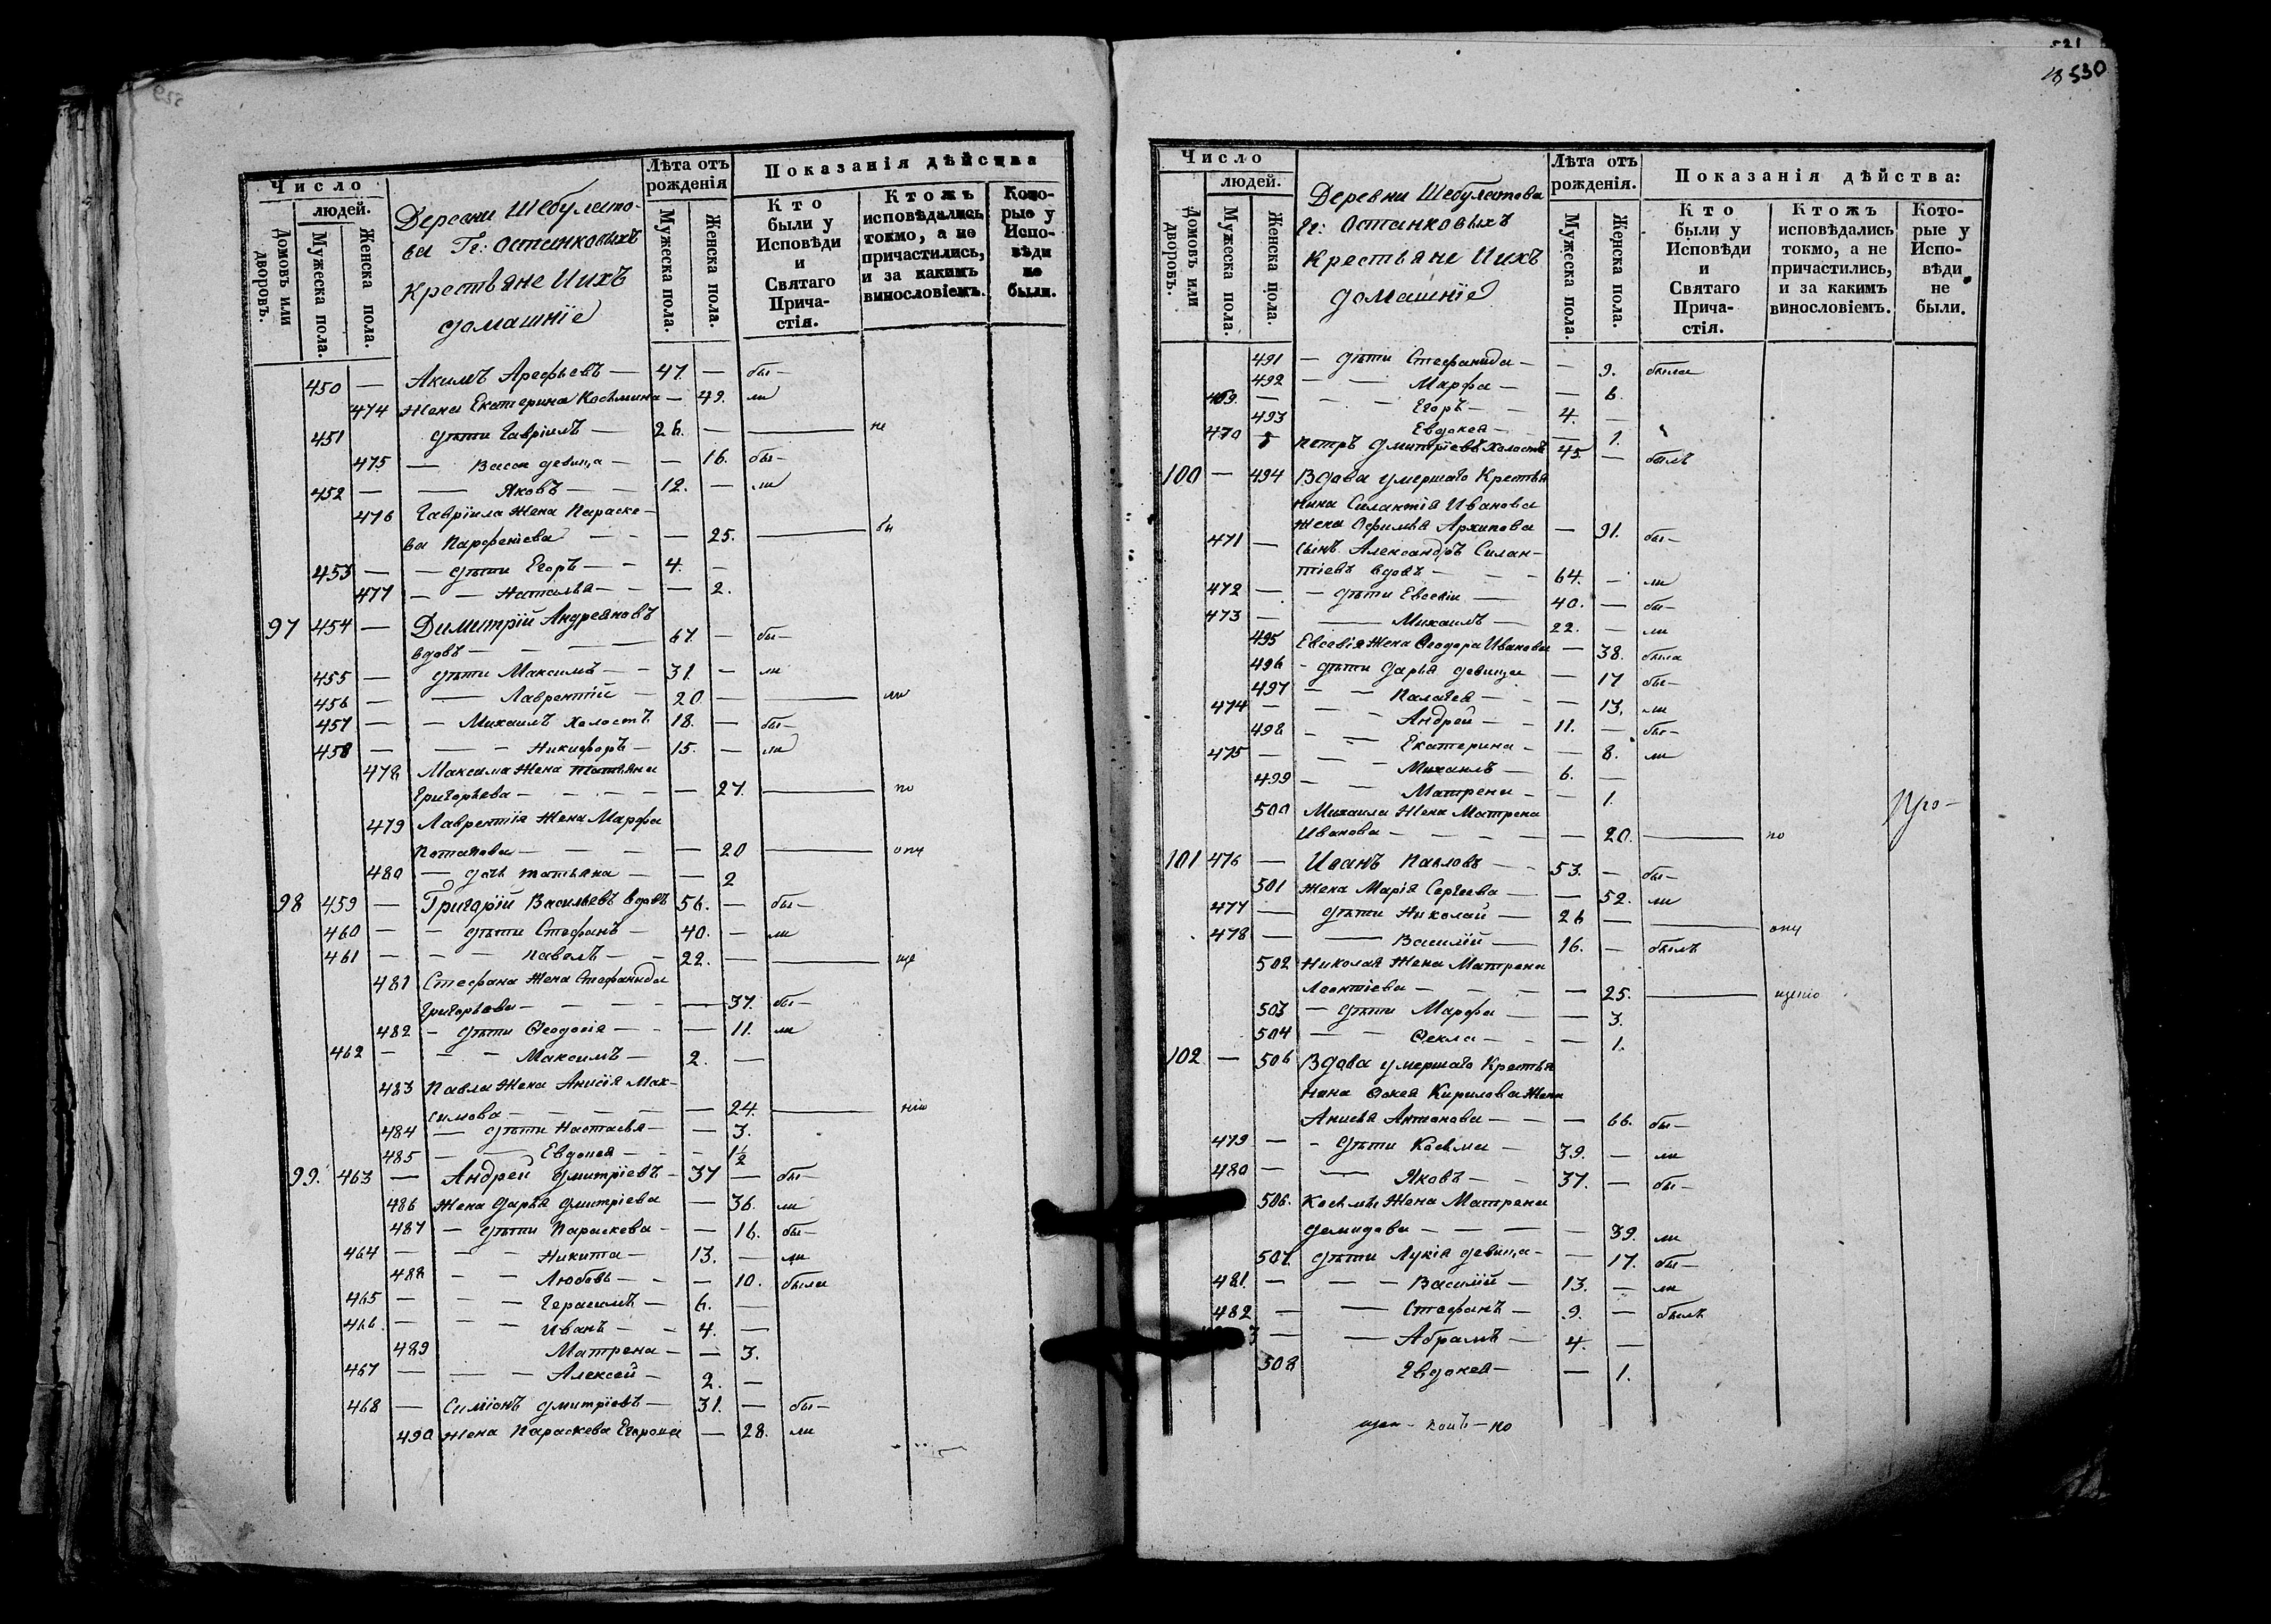 530
Число
людей.
Домовъ или дворовъ.
Мужеска пола.
Женска пола.
Деревни Шебулато-
ва Гг: Останковыхъ
Крестьяне Ихъ
домашніе
Лѣта отъ рожденія
Мужеска пола.
Женска пола.
Показанія дѣйства
Кто были у Исповѣди и Святаго Прича-стія.
Ктожъ исповѣдались токмо, а не причастились, и за какимъ винословіемъ.
Кото-рые у Испо-вѣди не были.
450 — Акимъ Арефьевъ — 47. — бы-
474 Жена Екатерина Косьмина — 49. ли
451 дѣти Гавріилъ — 26. — — не
475 — Васса девица — — 16. бы-
452 — — Яковъ — 12. — ли
476 Гавріила Жена Параске-
ва Парфеніева — — 25. — бы
453 — — дѣти Егоръ — 4. —
477 — — Наталья — — 2.
97 454 — Димитрій Андреяновъ
вдовъ — — 67 — бы-
455 — дѣти Максимъ — 31 — ли
456 — — Лаврентій — 20 — — ли
457 — — Михаилъ холостъ 18. — бы-
458 — — Никифоръ — 15. — ли
478 Максима Жена Татьяна
Григорьева — — 27. — по
479 Лаврентія Жена Марфа
Потапова — — 20 — опу
480 — дочь Татьяна — — 2
98 459 — Григорій Васильевъ вдовъ 56. — бы-
460 — — дѣти Стефанъ — 40. — ли
461 — — Павелъ — 22. — — ще
481 Стефана Жена Стефанида
Григорьева — — 37. бы-
482 — дѣти Феодосія — — 11. ли
462 — — Максимъ — 2. —
483 Павла Жена Анисія Мак-
симова — — 24. — нію
484 — дѣти Настасья — — 3.
485 — Евдокея — — 1½
99. 463 — Андрей Дмитріевъ — 37 — бы-
486 Жена Дарья Дмитріева — 36. ли
487 — дѣти Параскева — — 16. бы-
464 — — Никита — 13. — ли
488 — — Любовь — — 10. была
465 — — Герасимъ — 6. —
466. — — Иванъ — 4. —
489 Матрена — — 3.
467 — — Алексей — 2. —
468 — Симіонъ Дмитріевъ — 31. — бы-
490 Жена Параскева — 28. ли
Число
людей.
Домовъ или дворовъ.
Мужеска пола.
Женска пола.
Деревни Шебулатова
Гг: Останковыхъ
Крестьяне Ихъ
домашніе
Лѣта отъ рожденія.
Мужеска пола.
Женска пола.
Показанія дѣйства:
Кто были у Исповѣди и Святаго Прича-стія.
Ктожъ исповѣдались токмо, а не причастились, и за какимъ винословіемъ.
Кото-рые у Испо-вѣди не были.
491 — дѣти Стефанида — — 9. была
492 — — Марфа — — 6.
469. — — Егоръ — 4. —
493 Евдокея — — 1.
470 Петръ Дмитріевъ холостъ 45. — былъ
100 — 494 Вдова умершаго Крестья
нина Силантія Иванова
Жена Офимья Архипова — 91. бы-
471 — сынъ Александръ Силан-
тіевъ вдовъ — 64. — ли
472 — — дѣти Евсевій — 40. — бы-
473 — — Михаилъ — 22. — ли
495 Евсевія Жена Феодора Иванова — 38. была
496 — дѣти Дарья девица — 17 бы-
497 — — Палагея — — 13. ли
474 — — Андрей — 11. — бы-
498 — — Екатерина — — 8. ли
475 — — Михаилъ — 6. —
499 — — Матрена — — 1.
500 Михаила Жена Матрена
Иванова — — 20. — по
101 476 — Иванъ Павловъ — 53. — бы-
501 Жена Марія Сергеева — — 52. ли
477 — дѣти Николай — 26 — — опу
478 — — Василій — 16. — былъ
502 Николая Жена Матрена
Леонтіева — — 25. — щенію
503 — дѣти Марфа — — 3.
504 — — Фекла — — 1.
102 — 506 Вдова умершаго Крестья
нина Фокея Кирилова Жена
Анисья Антонова — — 66. бы-
479 — — дѣти Косьма — 39. — ли
480 — — Яковъ — 37. — бы-
506. Косьмы Жена Матрена
Демидова — — 39. ли
507. дѣти Лукія девица — — 17. бы-
481. — — Василій — 13. — ли
482 — — Стефанъ — 9. — былъ
3 — — Абрамъ — 4. —
508 Евдокея — — 1.